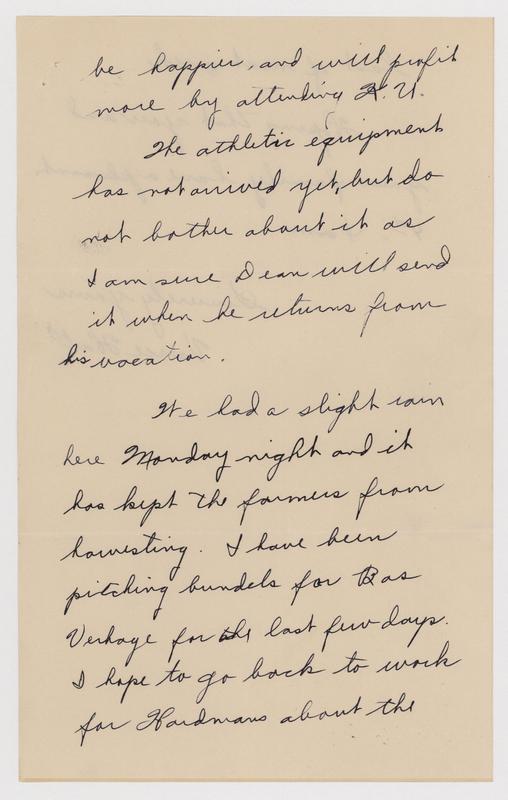 be happier, and will profit
more by attending K. U.
The athletic equipment
has not arrived yet, but do
not bother about it as
I am sure Dean will send
it when he returns from
his vacation.
We had a slight rain
here Monday night and it
has kept the farmers from
harvesting. I have been
pitching bundels for Bas
Verhage for the last few days.
I hope to go back to work
for Hardmans about the